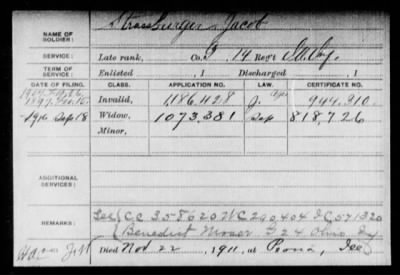 NAME OF SOLDIER: Strassburger, Jacob
SERVICE: Late rank, Co. G, 14 Reg't Ill. Cav.
TERM OF SERVICE: Enlisted , 1 Discharged , 1
DATE OF FILING. CLASS. APPLICATION NO. LAW. CERTIFICATE NO.
1897 Feb. 15 Invalid, 1,186,428 J. 944,310
1911 Sep 18 Widow, 1,073,381 Sep 818,726
Minor,
ADDITIONAL SERVICES:
REMARKS: See CC 358620 WC 290404 IC 571320
Benedict Moser G 24 Ohio Inf
Died Nov 22, 1911, at Peoria, Ill